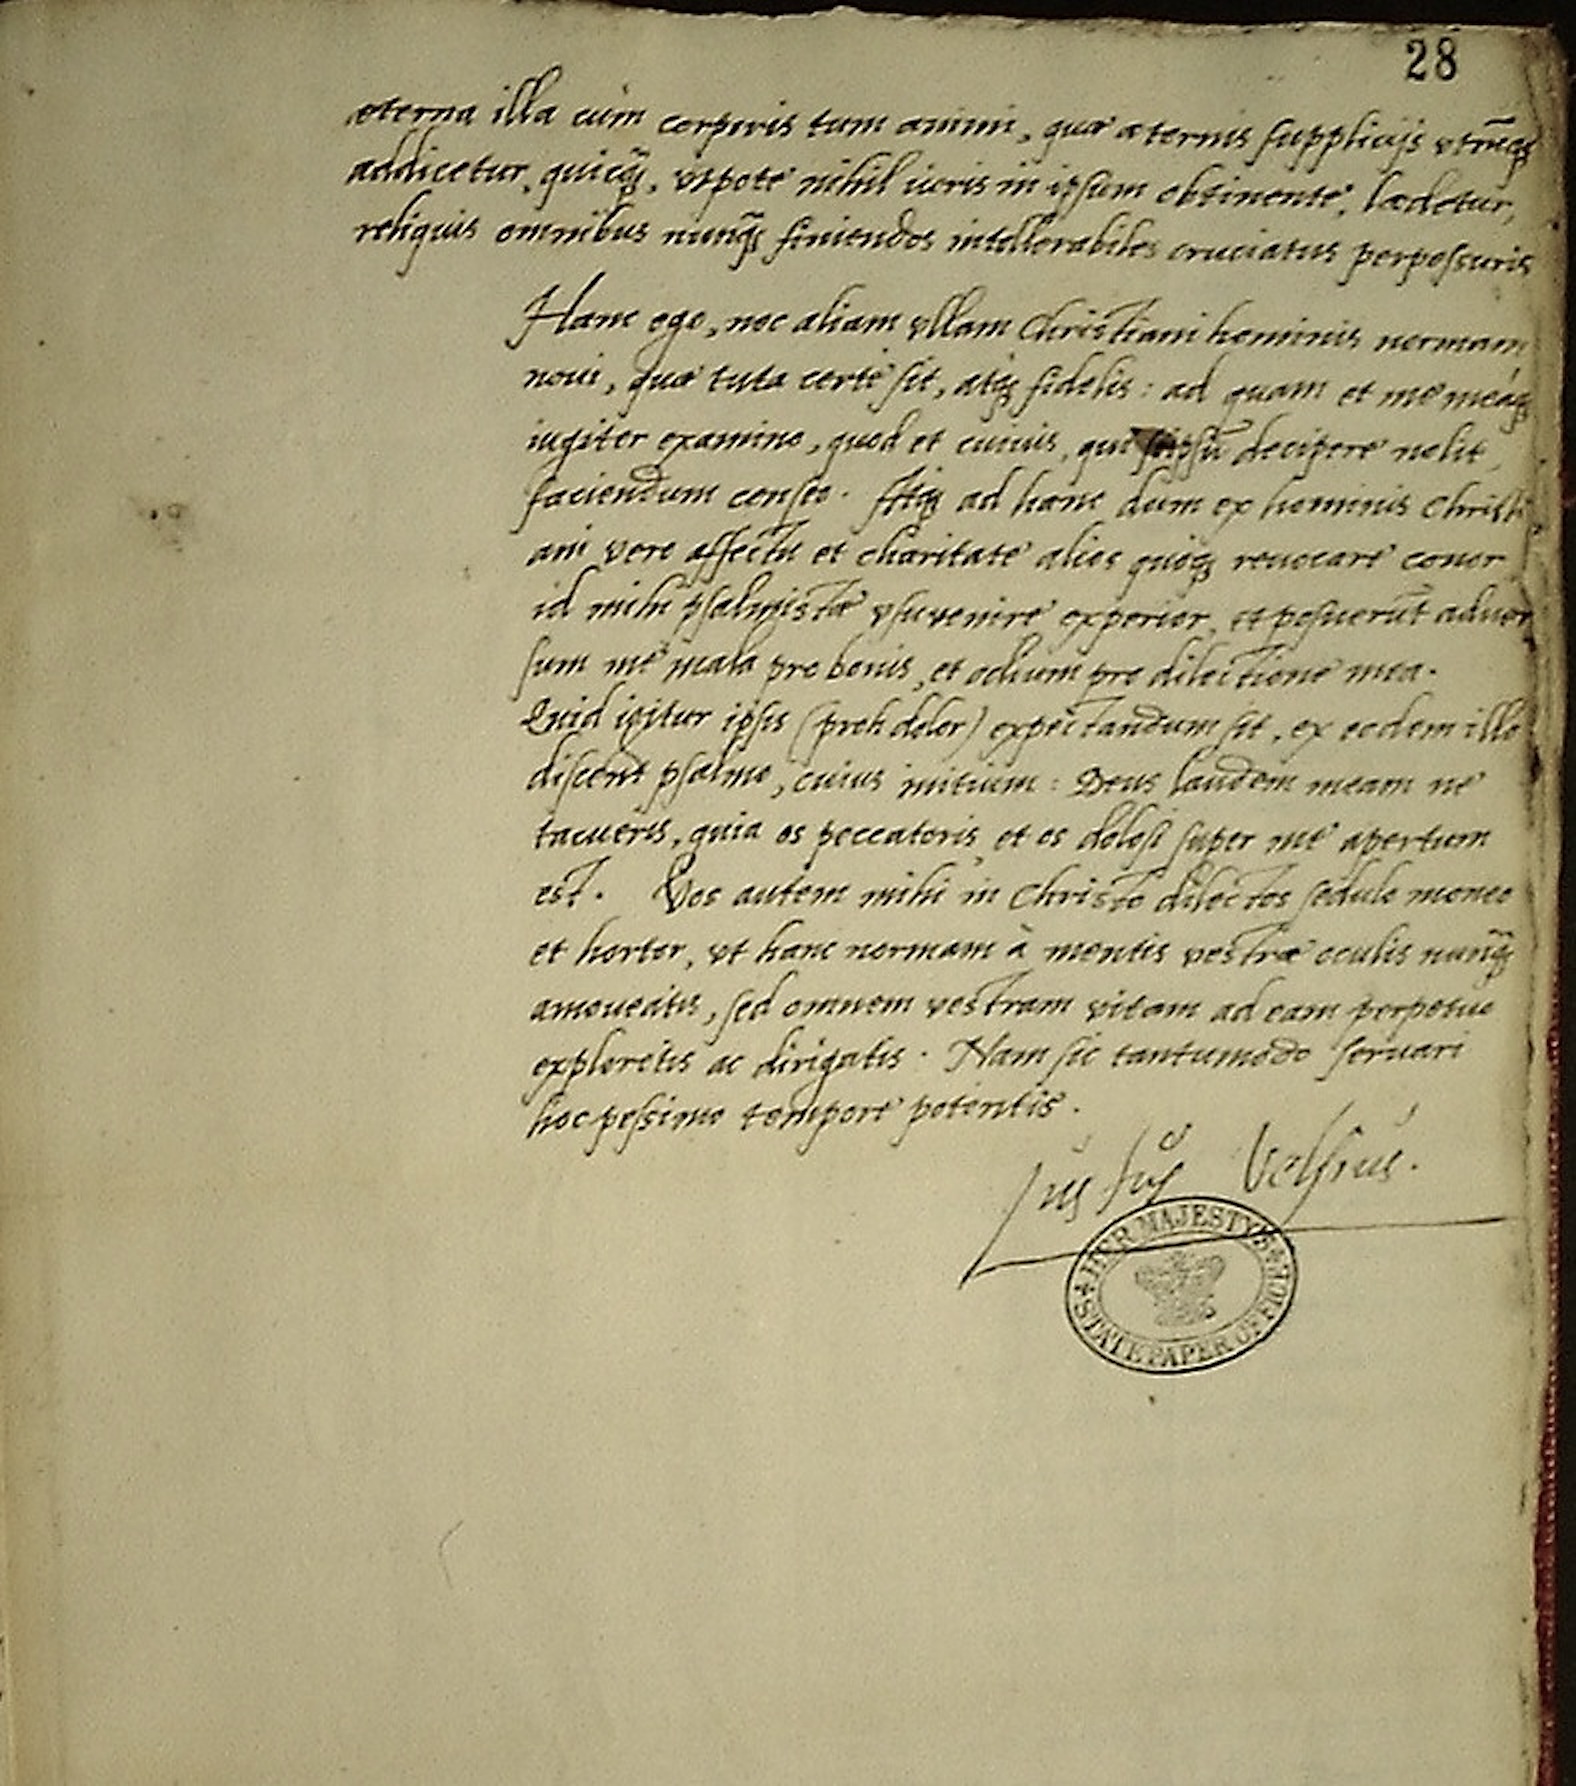 28
æterna illa cùm corporis tum animi, quæ æternis supplicijs vtrūq́ꝫ
addicetur, quicq̄ꝫ, vtpote nihil iuris in ipsum obtinente, lædetur,
reliquis omnibus nunq̄ꝫ finiendos intollerabiles cruciatus perpessuris
Hanc ego, nec aliam vllam Christiani hominis normam
noui, quæ tuta certè sit, atqꝫ fidelis: ad quam et me meaq́ꝫ
iugiter examino, quod et cuiuis, qui seipsū decipere nolit,
faciendum censeo. Atqꝫ ad hanc dum ex hominis Christi
ani vere affectu et charitate alios quoqꝫ reuocare conor
id mihi psalmistæ vsuvenire experior, et posuerūt aduer
sum me mala pro bonis, et odium pro dilectione mea.
Quid igitur ipsis (proh dolor) expectandum sit, ex eodem illo
discent psalmo, cuius initium: Deus laudem meam ne
tacueris, quia os peccatoris, et os dolosi super me apertum
est. Vos autem mihi in Christo dilectos sedulo moneo
et hortor, vt hanc normam à mentis vestræ oculis nunq̄ꝫ
amoueatis, sed omnem vestram vitam ad eam perpetuo
exploretis ac dirigatis. Nam sic tantumodo seruari
hoc pessimo tempore potentis.
Justus Velsius.
HER MAJESTY'S
STATE PAPER OFFICE